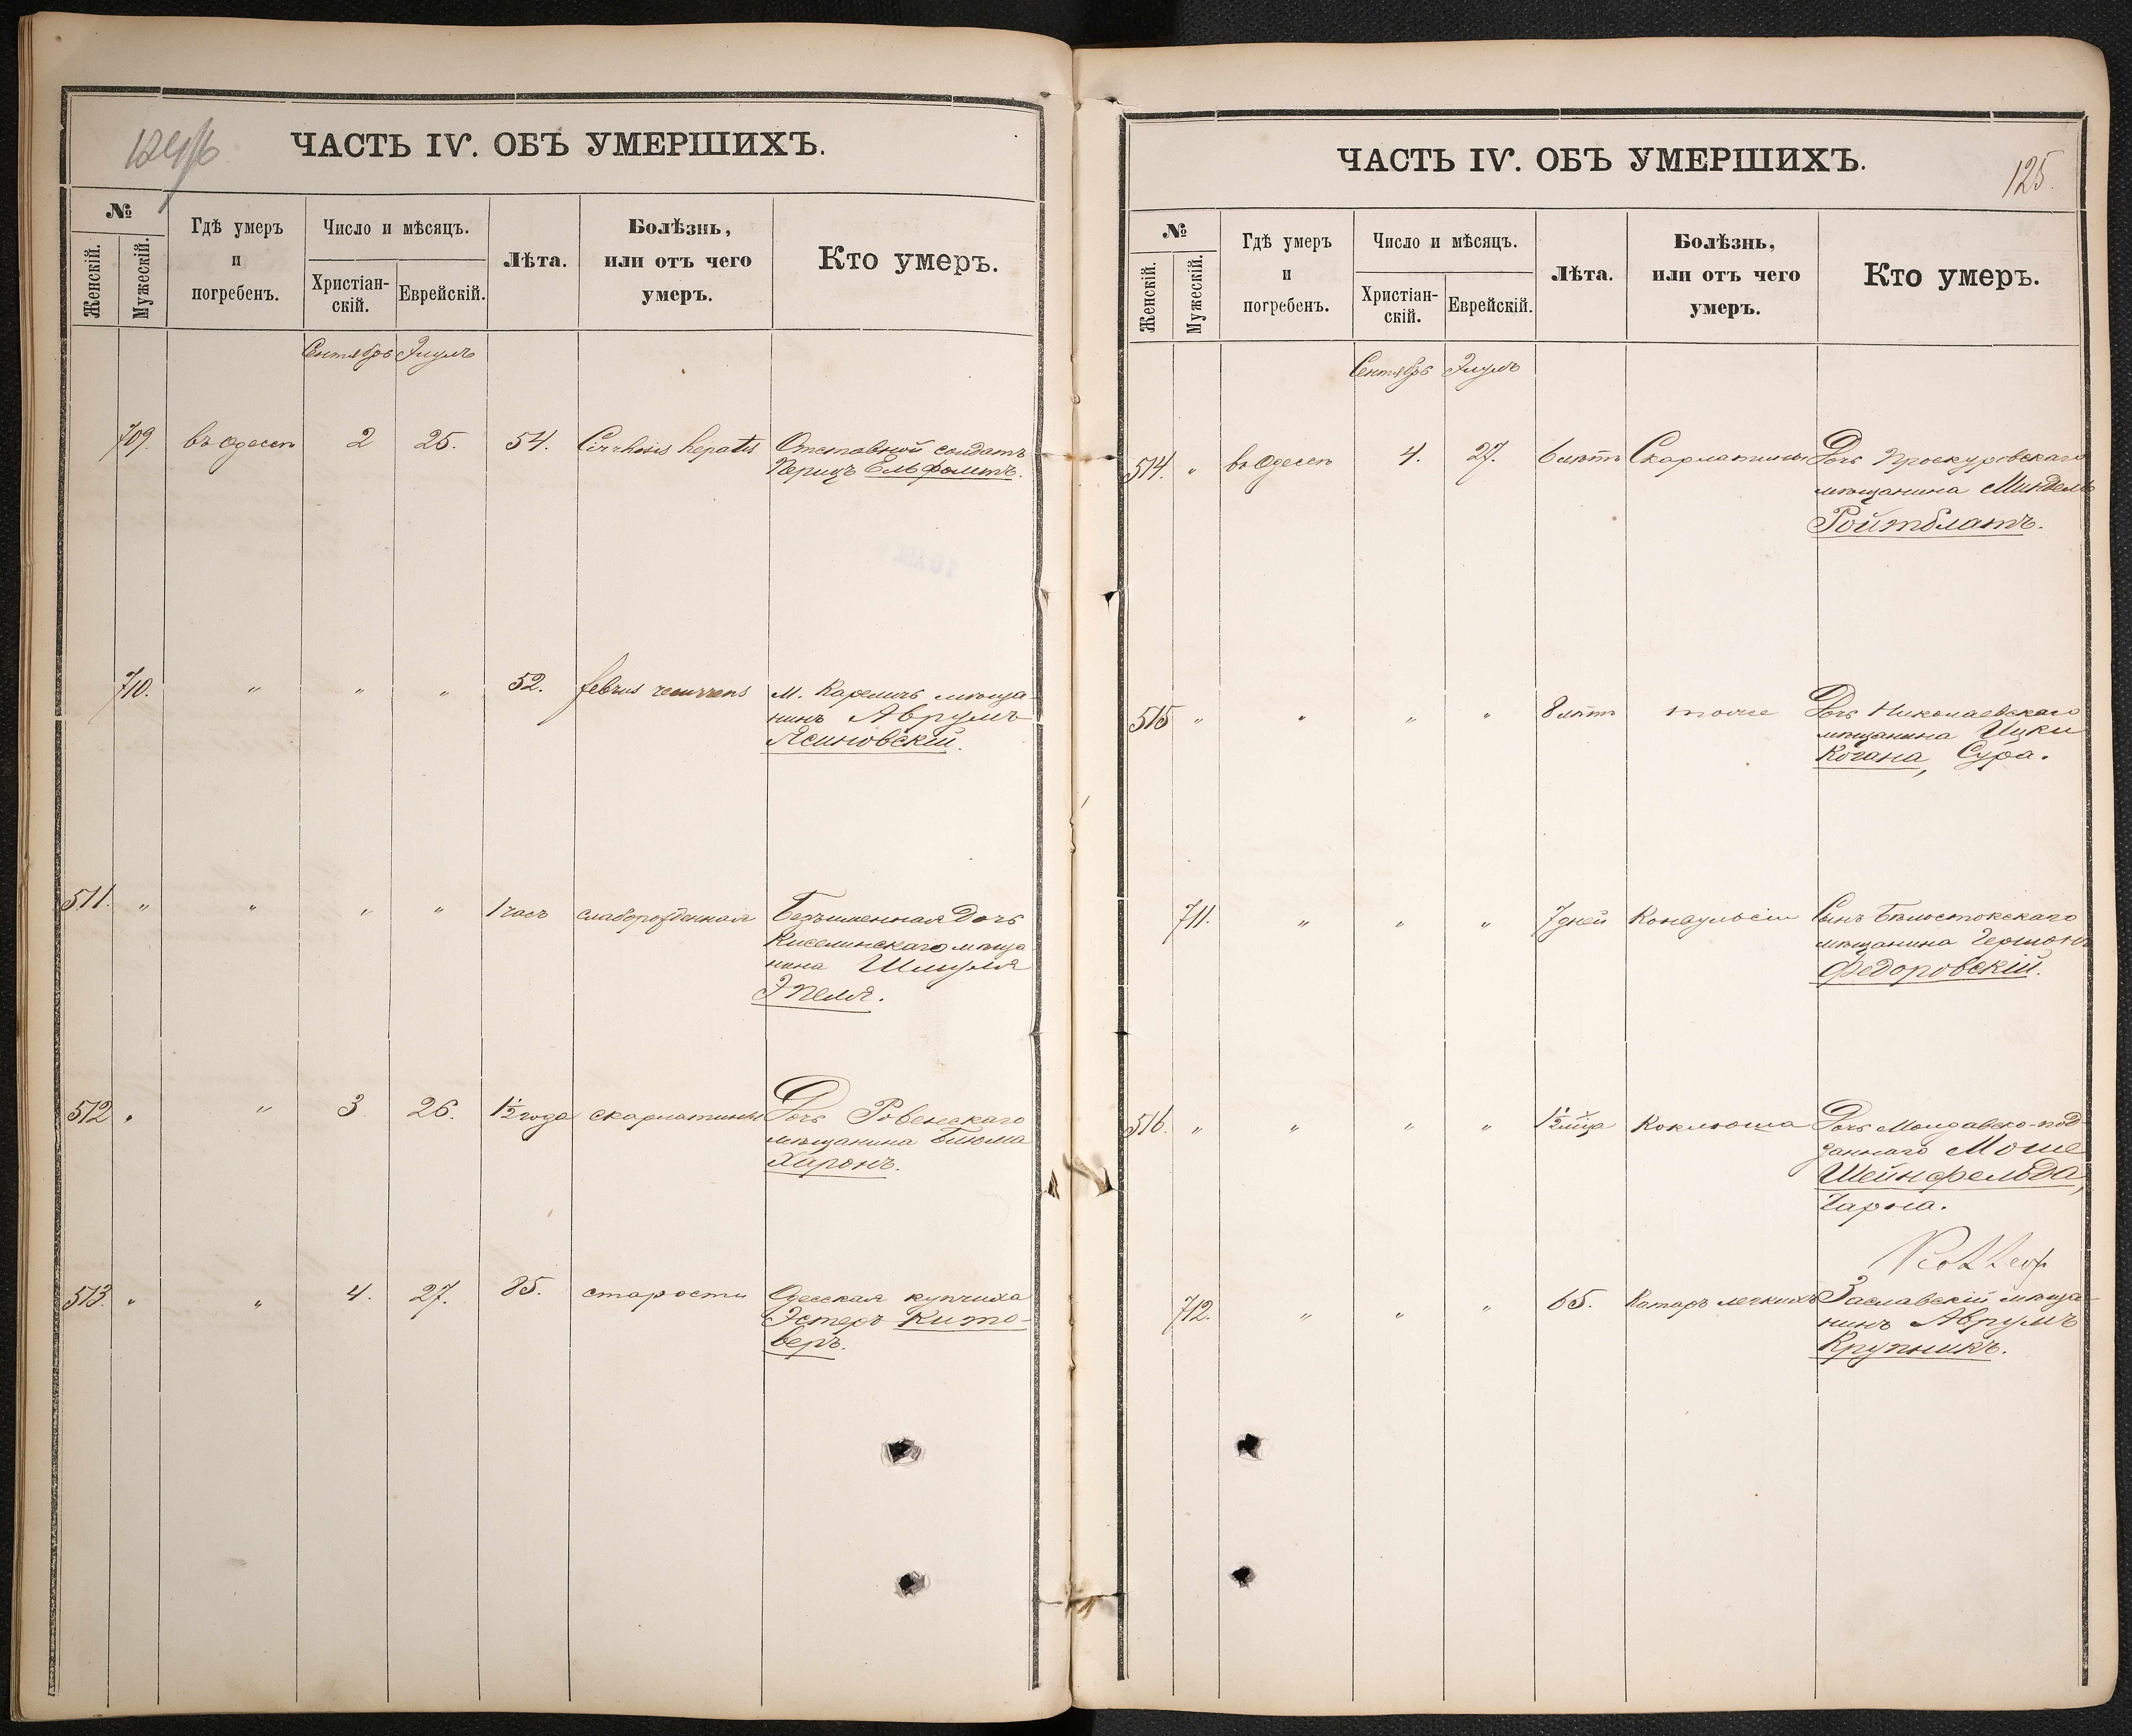 ЧАСТЬ IV. ОБЪ УМЕРШИХЪ.
№
Женскій.
Мужескій.
Гдѣ умеръ
и
погребенъ.
Число и мѣсяцъ.
Христіан-
скій.
Еврейскій.
Лѣта.
Болѣзнь,
или отъ чего
умеръ.
Кто умеръ.
Сентябрь Элулъ
709. въ Одессѣ 2 25. 54. Cirrhosis hepatis Отставной солдатъ
Перицъ Ельфонтъ.
710. " " " 52. febris recurrens М. мѣща-
нинъ Аврумъ
Ясиновскій.
511. " " " " 1 часъ слаборожденная Безъименная Дочь
Киселинскаго мѣща-
нина Шмуля
Эпеля.
512 " " 3 26. 1½ года скарлатины Дочь Ровенскаго
мѣщанина Блюма
Харонъ.
513. " " 4. 27. 85. старости Одесская купчиха
Эстеръ Кито-
веръ.
ЧАСТЬ IV. ОБЪ УМЕРШИХЪ.
125.
№
Женскій.
Мужескій.
Гдѣ умеръ
и
погребенъ.
Число и мѣсяцъ.
Христіан-
скій.
Еврейскій.
Лѣта.
Болѣзнь,
или отъ чего
умеръ.
Кто умеръ.
Сентябрь Элулъ
514. " въ Одессѣ 4. 27. 6 лѣтъ Скарлатины Дочь Проскуровскаго
мѣщанина Миндель
Ройтблатъ.
515 " " " " 8 лѣтъ тоже Дочь Николаевскаго
мѣщанина Ицки
Когана, Сура.
711. " " " 7 дней Конвульсіи Сынъ Бѣлостокскаго
мѣщанина Гершонъ
Федоровскій.
516. " " " " 1½ мѣца Коклюша Дочь Молдавско-под-
даннаго Моше
Шейнфельда,
Чарна.
712. " " " 65. Катаръ легкихъ Заславскій мѣща-
нинъ Аврумъ
Крупникъ.